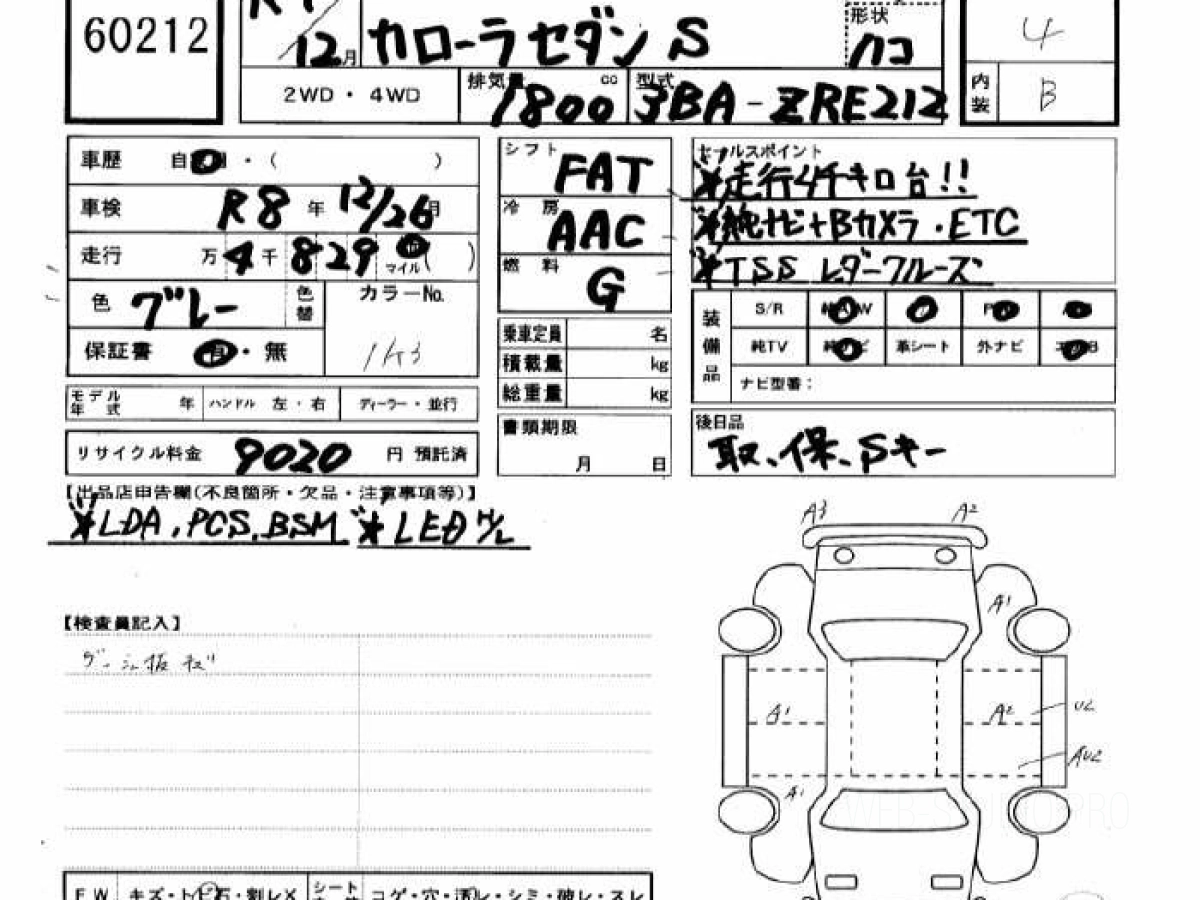 60212
12月 カローラセダン S
形状 ハコ
4
2WD・4WD 排気量 1800 cc 型式 3BA-ZRE212
内装 B
車歴 自 ・( )
車検 R8 年 12/26 月
走行 万 4 千 8290 マイル( )
色 グレー 色替 カラーNo. 1K3
保証書 有・無
モデル年式 年 ハンドル 左・右 ディーラー・並行
リサイクル料金 9020 円 預託済
シフト FAT
冷房 AAC
燃料 G
乗車定員 名
積載量 kg
総重量 kg
書類期限
月 日
セールスポイント
※走行4千キロ台!!
※純ナビ+Bカメラ・ETC
※TSS レダークルーズ
装備品 S/R
純TV 革シート 外ナビ
ナビ型番:
後日品
取、保、Sキー
【出品店申告欄(不良箇所・欠品・注意事項等)】
※LDA、PCS、BSM ※LED H/L
【検査員記入】
A3 A2
A1
A1 A2 U2
AU2
A1
WEB-S PRO
FW キズ・トビ石・割レX シート コゲ・穴・汚レ・シミ・破レ・スレ